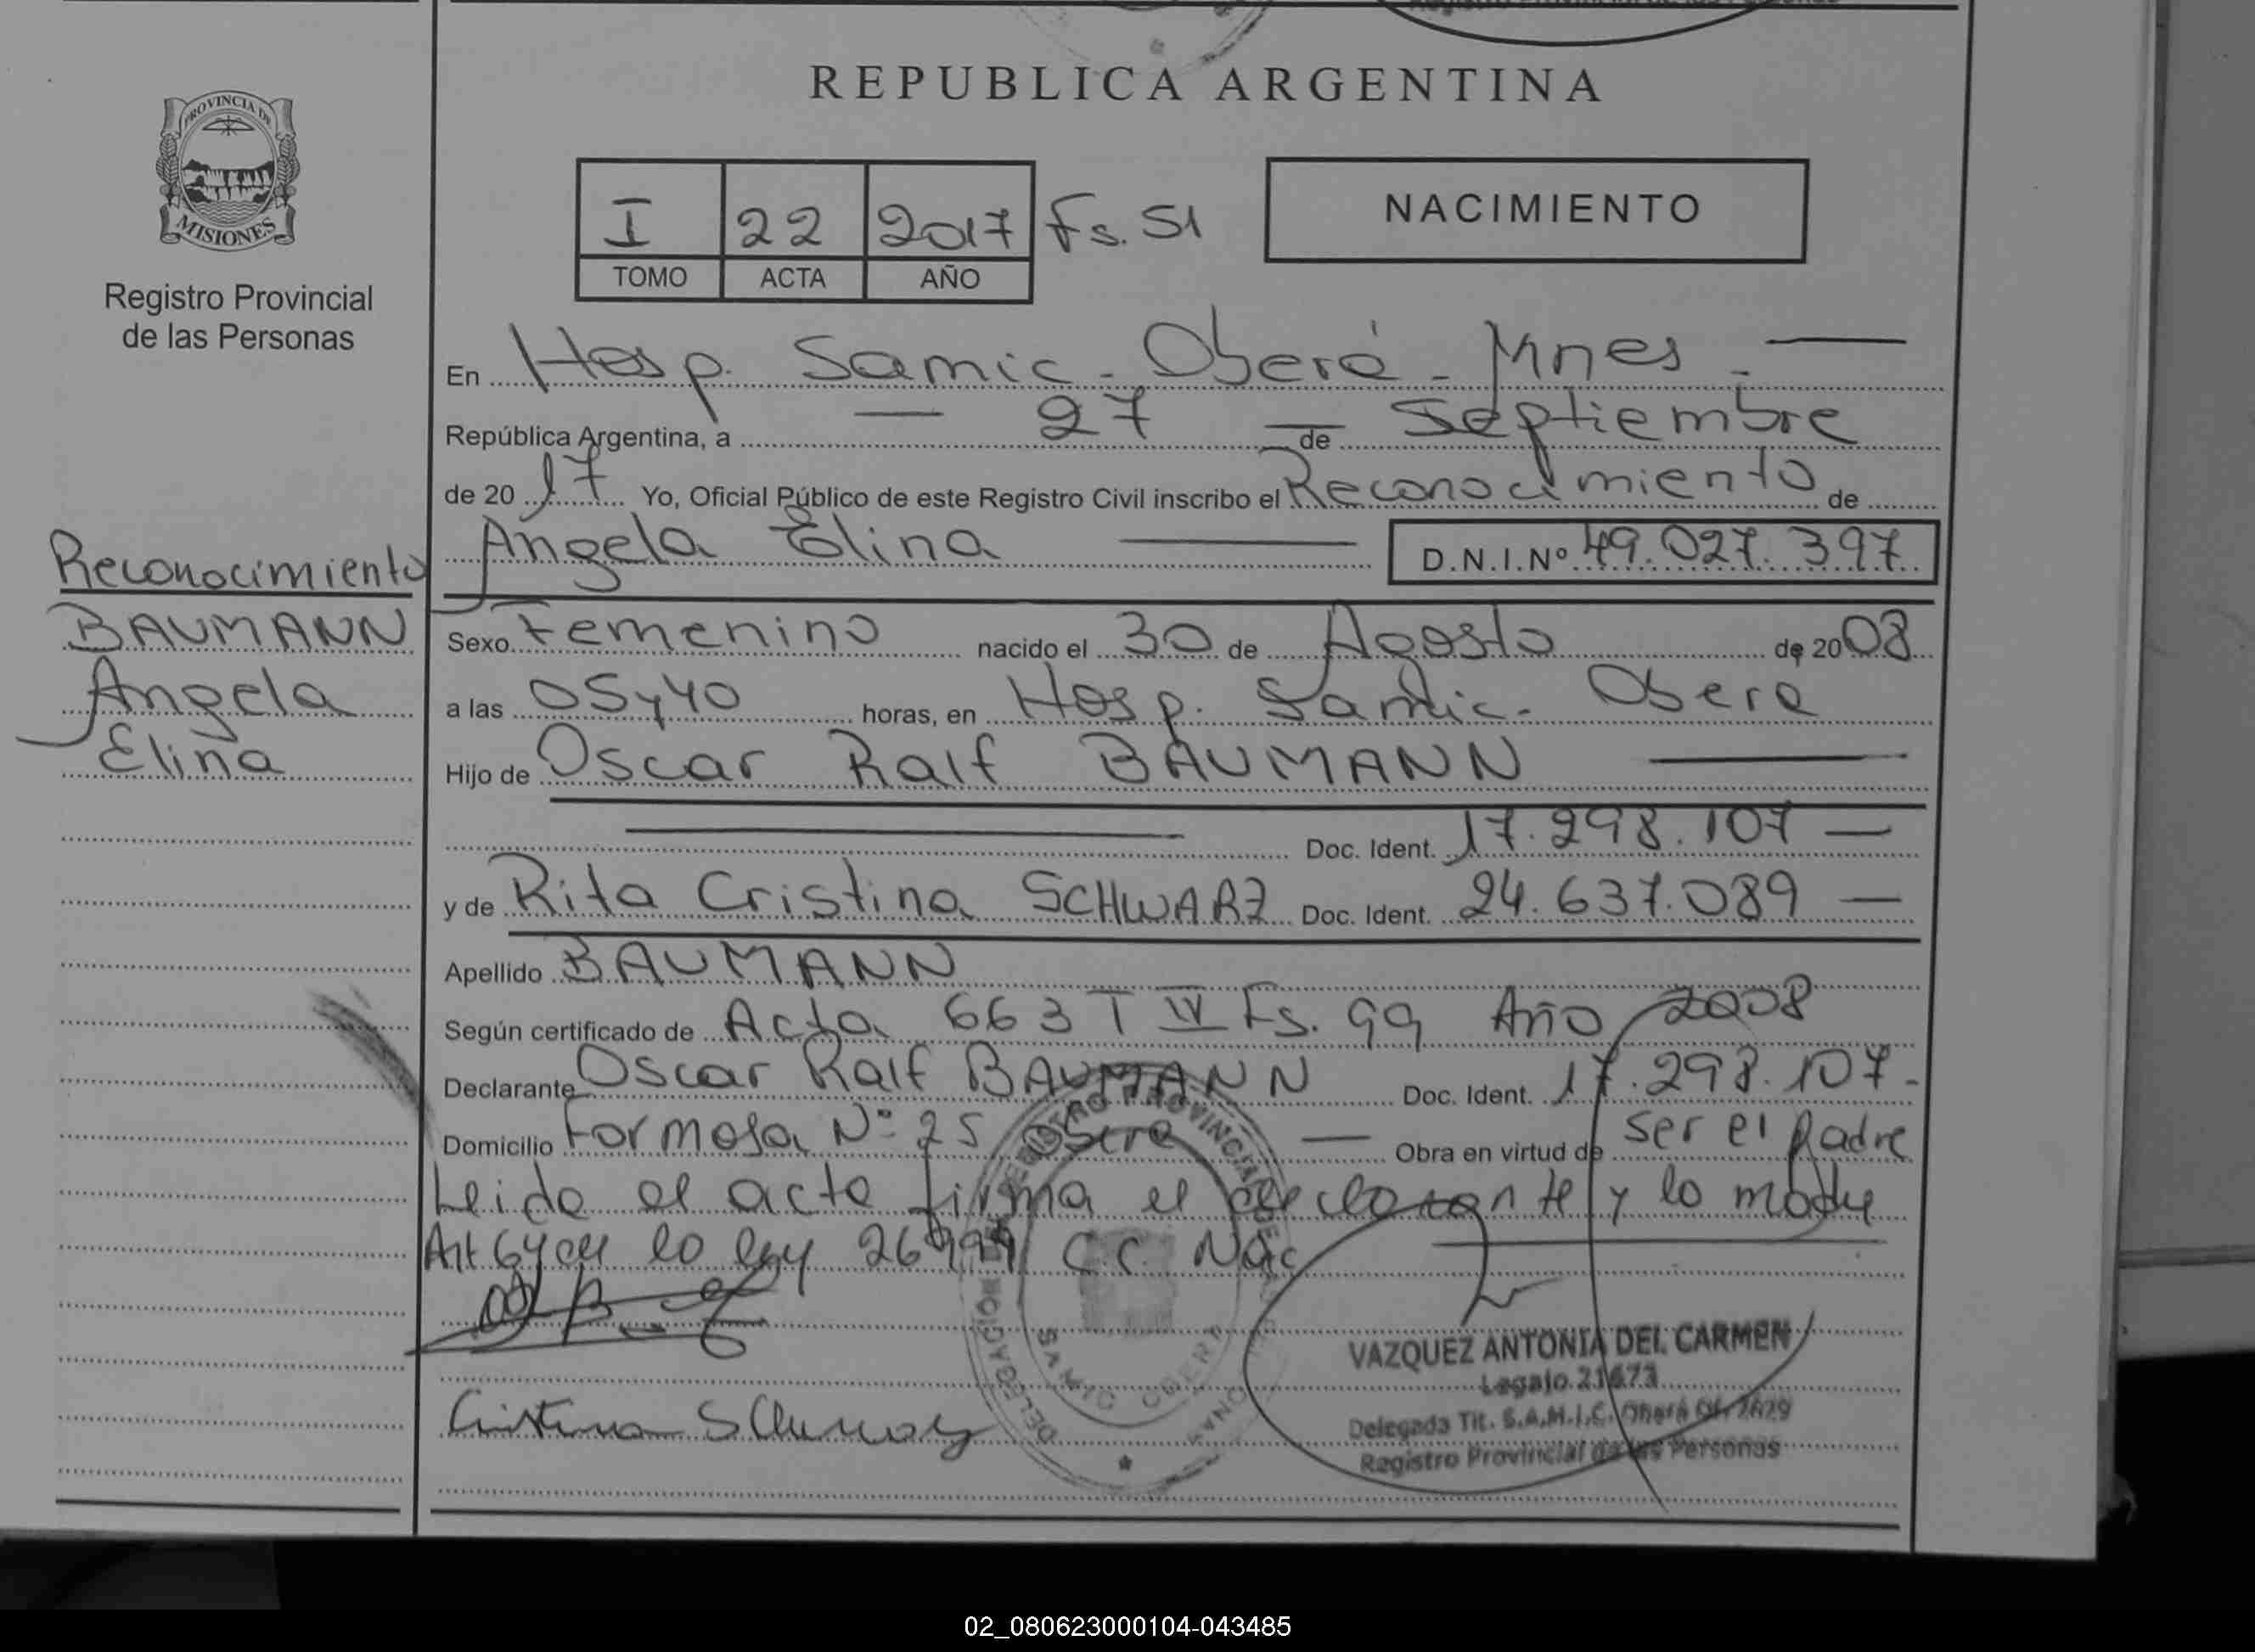 REPUBLICA ARGENTINA
PROVINCIA DE
MISIONES
Registro Provincial
de las Personas
I 22 2017 Fs. 51
TOMO ACTA AÑO
NACIMIENTO
En Hosp. Samic - Oberá - Mnes. —
República Argentina, a — 27 — de Septiembre
de 2017 Yo, Oficial Público de este Registro Civil inscribo el Reconocimiento de
Angela Elina — D.N.I.Nº 49.027.397
Reconocimiento
BAUMANN
Angela
Elina
Sexo Femenino nacido el 30 de Agosto de 2008
a las 05y40 horas, en Hosp. Samic - Obera
Hijo de Oscar Ralf BAUMANN —
— Doc. Ident. 17.298.107 —
y de Rita Cristina SCHWARZ Doc. Ident. 24.637.089 —
Apellido BAUMANN
Según certificado de Acta 663 T IV Fs. 99 Año 2008
Declarante Oscar Ralf BAUMANN Doc. Ident. 17.298.107-
Domicilio Formosa Nº 25 Obera — Obra en virtud de ser el padre
Leida el acta firma el declarante y la madre
Art 64 la ley 26994 C.C. Nac
VAZQUEZ ANTONIA DEL CARMEN
Legajo 21673
Delegada Tit. S.A.M.I.C. Oberá Of. 2629
Registro Provincial de las Personas
REGISTRO PROVINCIAL DE
DELEGACION
SAMIC OBERA
Cristina
02_080623000104-043485